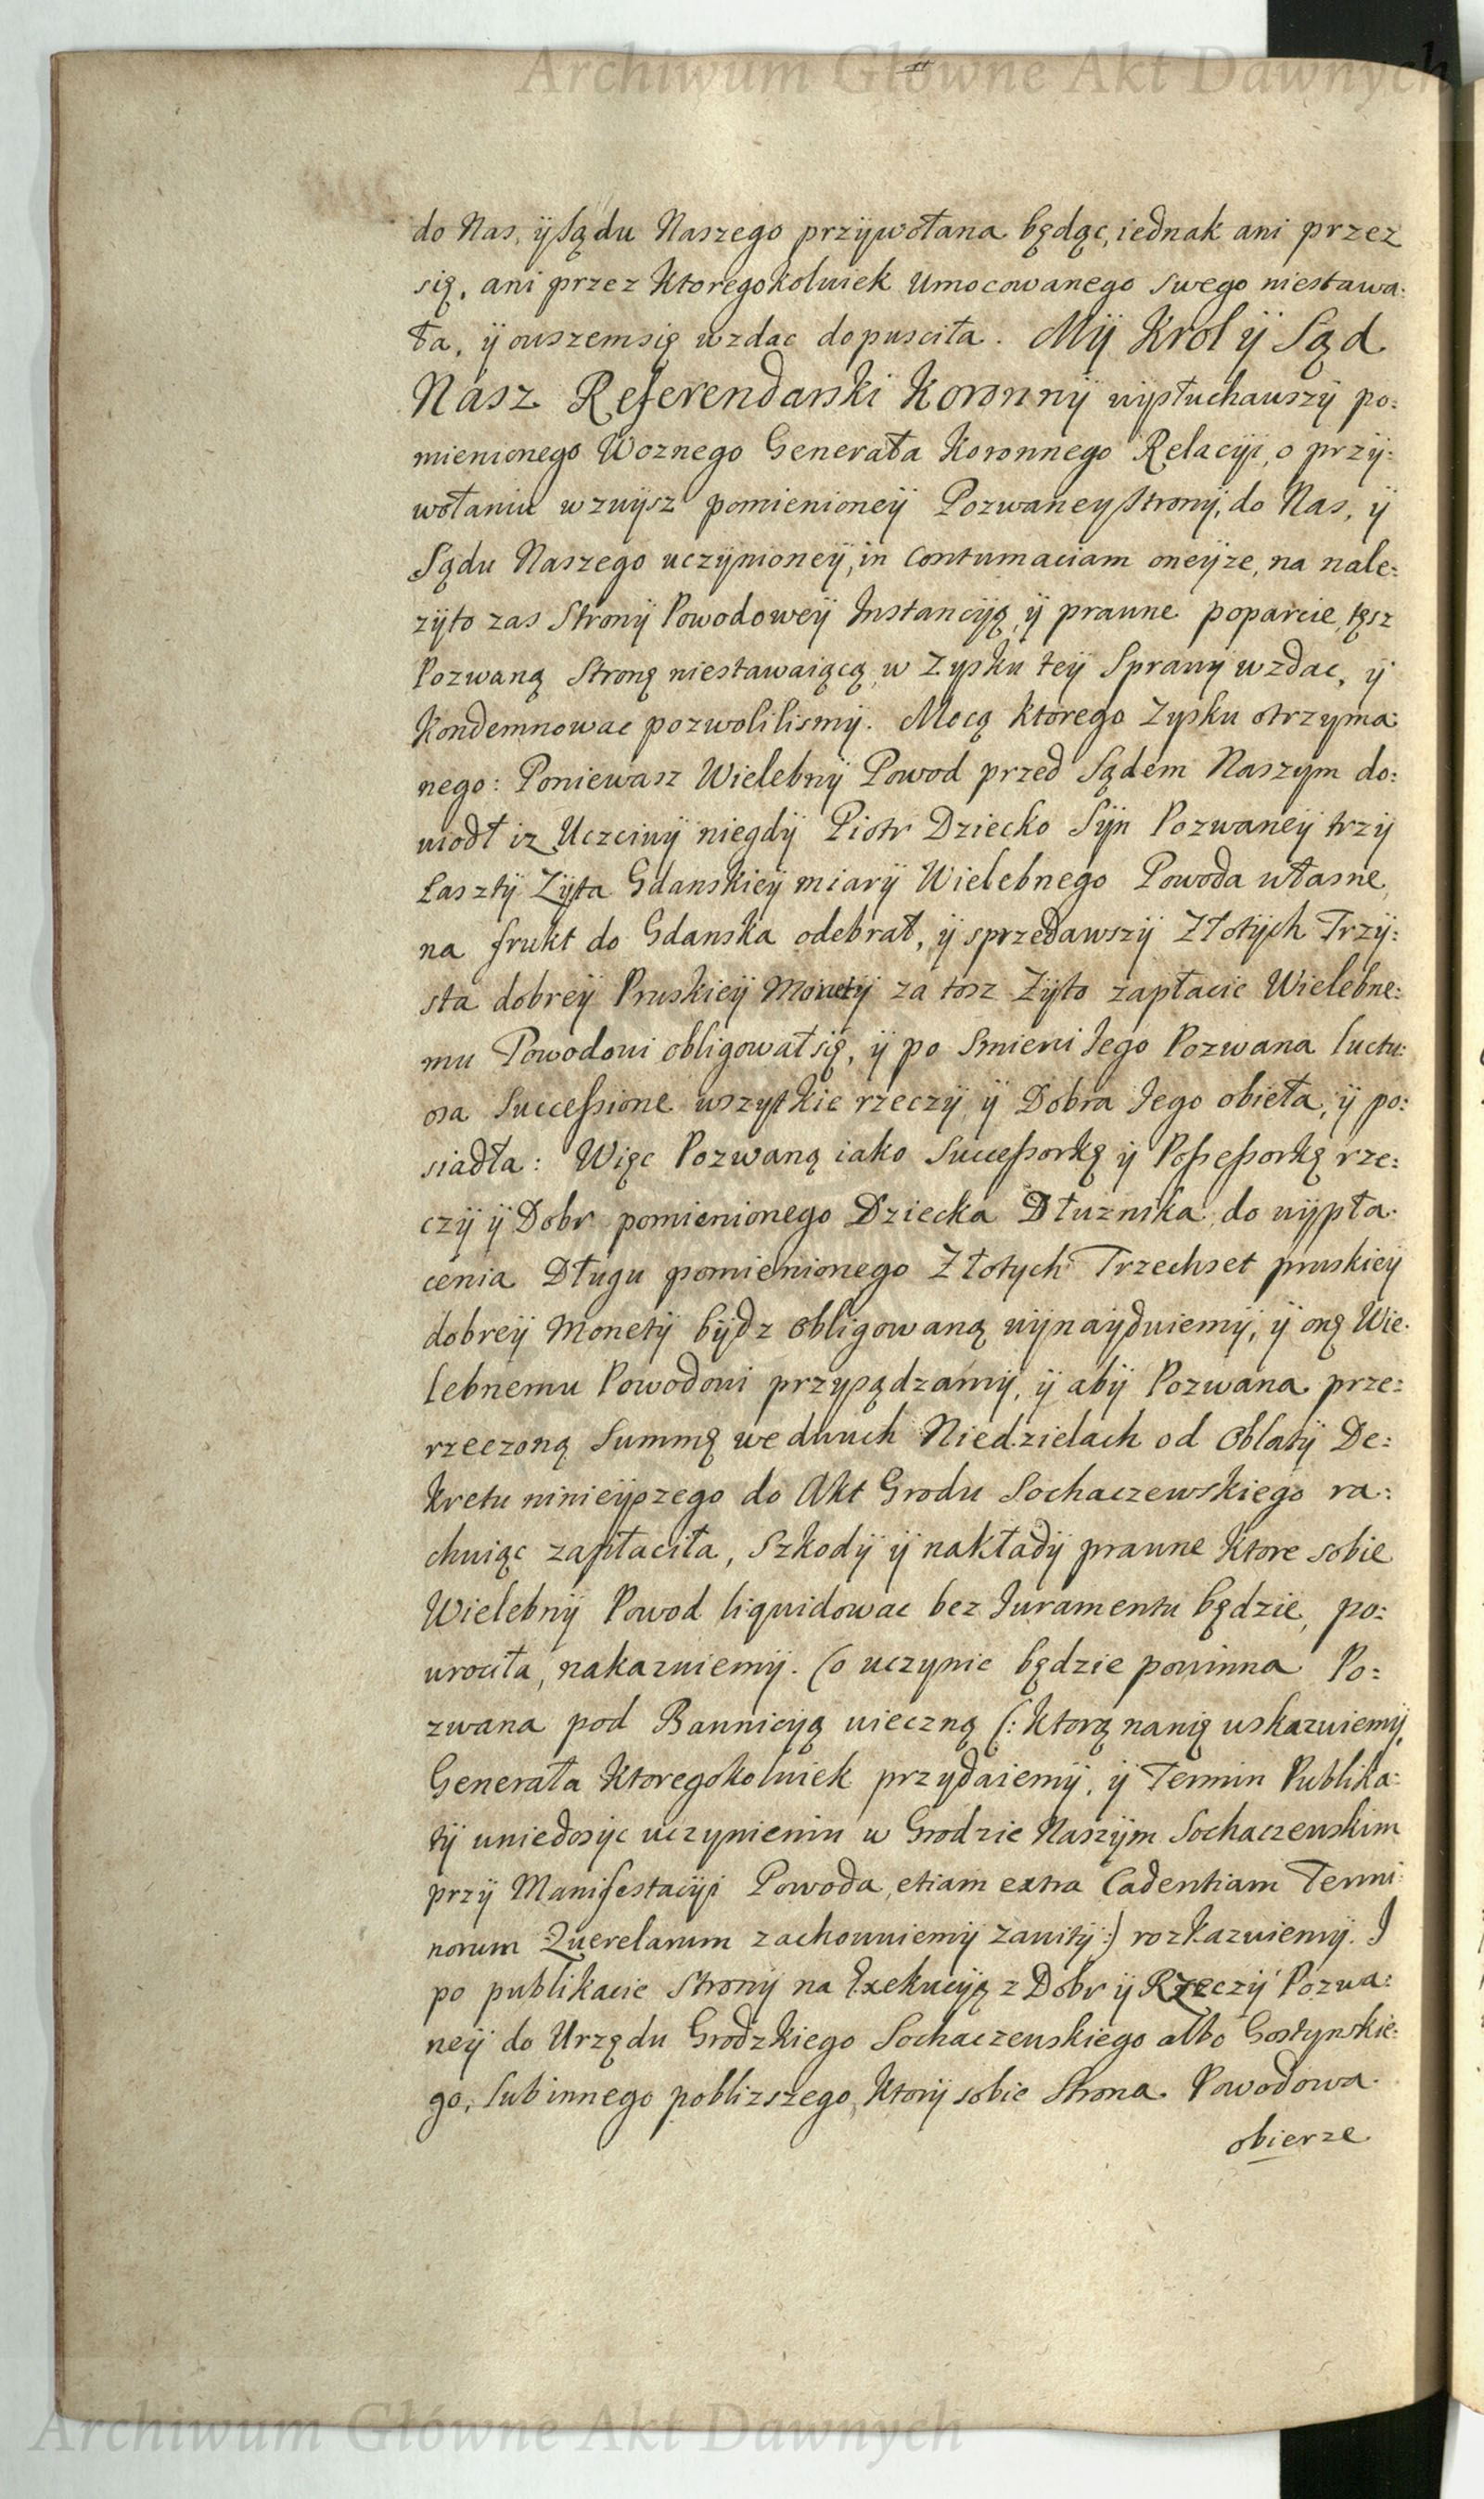 Archiwum Główne Akt Dawnych
do Nas, ÿ Sądu Naszego przÿwołana będąc, iednak ani przez
się, ani przez Ktoregokolwiek Umocowanego swego niestawa:
ła, ÿ owszem się wzdac dopusciła. Mÿ Krol ÿ Sąd
Nász Referendarski Koronnÿ wÿsłuchawszÿ po:
mienionego Woznego Generała Koronnego Relacÿi, o przÿ:
wołaniu wzwÿsz pomienioneÿ Pozwaney Stronÿ, do Nas, ÿ
Sądu Naszego uczÿnioneÿ, in Contumaciam oneÿze, na nale:
zÿto zas Stronÿ Powodoweÿ Instancÿą, ÿ prawne poparcie, tęsz
Pozwaną Stronę niestawaiącą, w Zysku teÿ Sprawÿ wzdac, ÿ
Kondemnowac pozwolilismÿ. Mocą ktorego Zysku otrzyma:
nego: Poniewasz Wielebnÿ Powod przed Sądem Naszym do:
wiodł iz Uczciwÿ niegdÿ Piotr Dziecko Sÿn Pozwaneÿ trzÿ
Łasztÿ Zÿta Gdanskieÿ miarÿ Wielebnego Powoda własne,
na frukt do Gdanska odebrał, ÿ sprzedawszÿ Złotÿch Trzÿ:
sta dobreÿ Pruskieÿ Monetÿ za tosz Zÿto zapłacic Wielebne:
mu Powodowi obligował się, ÿ po Smierci Jego Pozwana luctu:
osa Successione wszystkie rzeczÿ ÿ Dobra Jego obieła, ÿ po:
siadła: Więc Pozwaną iako Successorkę ÿ Possessorkę rze:
czÿ ÿ Dobr pomienionego Dziecka Dłuznika, do wÿpła:
cenia Długu pomienionego Złotych Trzechset pruskieÿ
dobreÿ Monetÿ bÿdz obligowaną wÿnaÿduiemÿ, ÿ onę Wie:
lebnemu Powodowi przysądzamÿ, ÿ abÿ Pozwana prze:
rzeczoną Summę we dwuch Niedzielach od Oblatÿ De:
kretu ninieÿszego do Akt Grodu Sochaczewskiego ra:
chuiąc zapłaciła, Szkodÿ ÿ nakładÿ prawne Ktore sobie
Wielebnÿ Powod liquidowac bez Juramentu będzie, po:
wrociła, nakazuiemÿ. Co uczynic będzie powinna Po:
zwana pod Bannicyą wieczną (: Ktorą nanię wskazuiemÿ,
Generała Ktoregokolwiek przydaiemÿ, ÿ Termin Publika:
tÿ wniedosÿc uczynieniu w Grodzie Naszÿm Sochaczewskim
przÿ Manifestacÿi Powoda, etiam extra Cadentiam Termi:
norum Querelarum zachowuiemÿ zawitÿ:) rozkazuiemÿ. I
po publikacie Stronÿ na Exekucÿą z Dobr ÿ Rzeczÿ Pozwa:
neÿ do Urzędu Grodzkiego Sochaczewskiego albo Gostynskie:
go, lub innego poblizszego, Ktorÿ sobie Strona Powodowa
obierze
Archiwum Główne Akt Dawnych